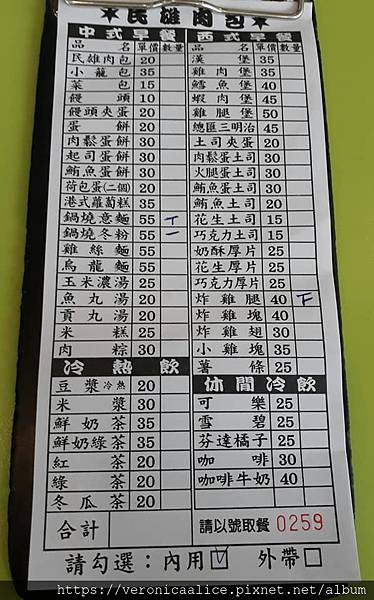 ★民雄肉包★
中式早餐
品名 單價 數量
民雄肉包 20
小籠包 35
菜包 15
饅頭 10
饅頭夾蛋 20
蛋餅 20
肉鬆蛋餅 30
起司蛋餅 30
鮪魚蛋餅 30
荷包蛋(二個) 20
港式蘿蔔糕 35
鍋燒意麵 55 T
鍋燒冬粉 55 一
雞絲麵 55
烏龍麵 55
玉米濃湯 25
魚丸湯 20
貢丸湯 20
米糕 25
肉粽 30
冷熱飲
豆漿冷熱 20
米漿 30
鮮奶茶 35
鮮奶綠茶 35
紅茶 20
綠茶 20
冬瓜茶 20
合計
西式早餐
品名 單價 數量
漢堡 35
雞肉堡 35
鱈魚堡 40
蝦肉堡 45
雞腿堡 50
總匯三明治 45
土司夾蛋 20
肉鬆蛋土司 30
火腿蛋土司 30
鮪魚蛋土司 30
鮪魚土司 20
花生土司 15
巧克力土司 15
奶酥厚片 25
花生厚片 25
巧克力厚片 25
炸雞腿 40 F
炸雞塊 40
炸雞翅 30
小雞塊 35
薯條 25
休閒冷飲
可樂 25
雪碧 25
芬達橘子 25
咖啡 30
咖啡牛奶 40
請以號取餐 0259
請勾選：內用☑ 外帶□
https://veronicaalice.pixnet.net/album